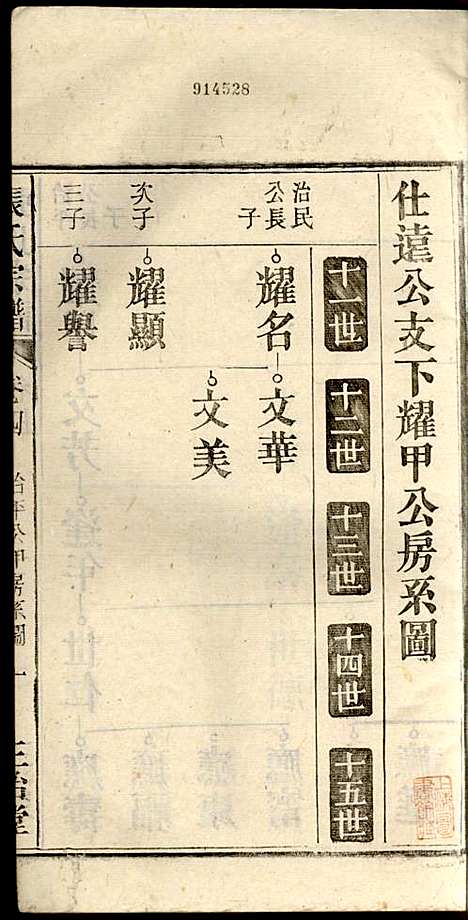 914528
仕遠公支下耀甲公房系圖
十一世
十二世
十三世
十四世
十五世
治民公長子
耀名
文華
文美
次子
耀顯
三子
耀譽
張氏宗譜